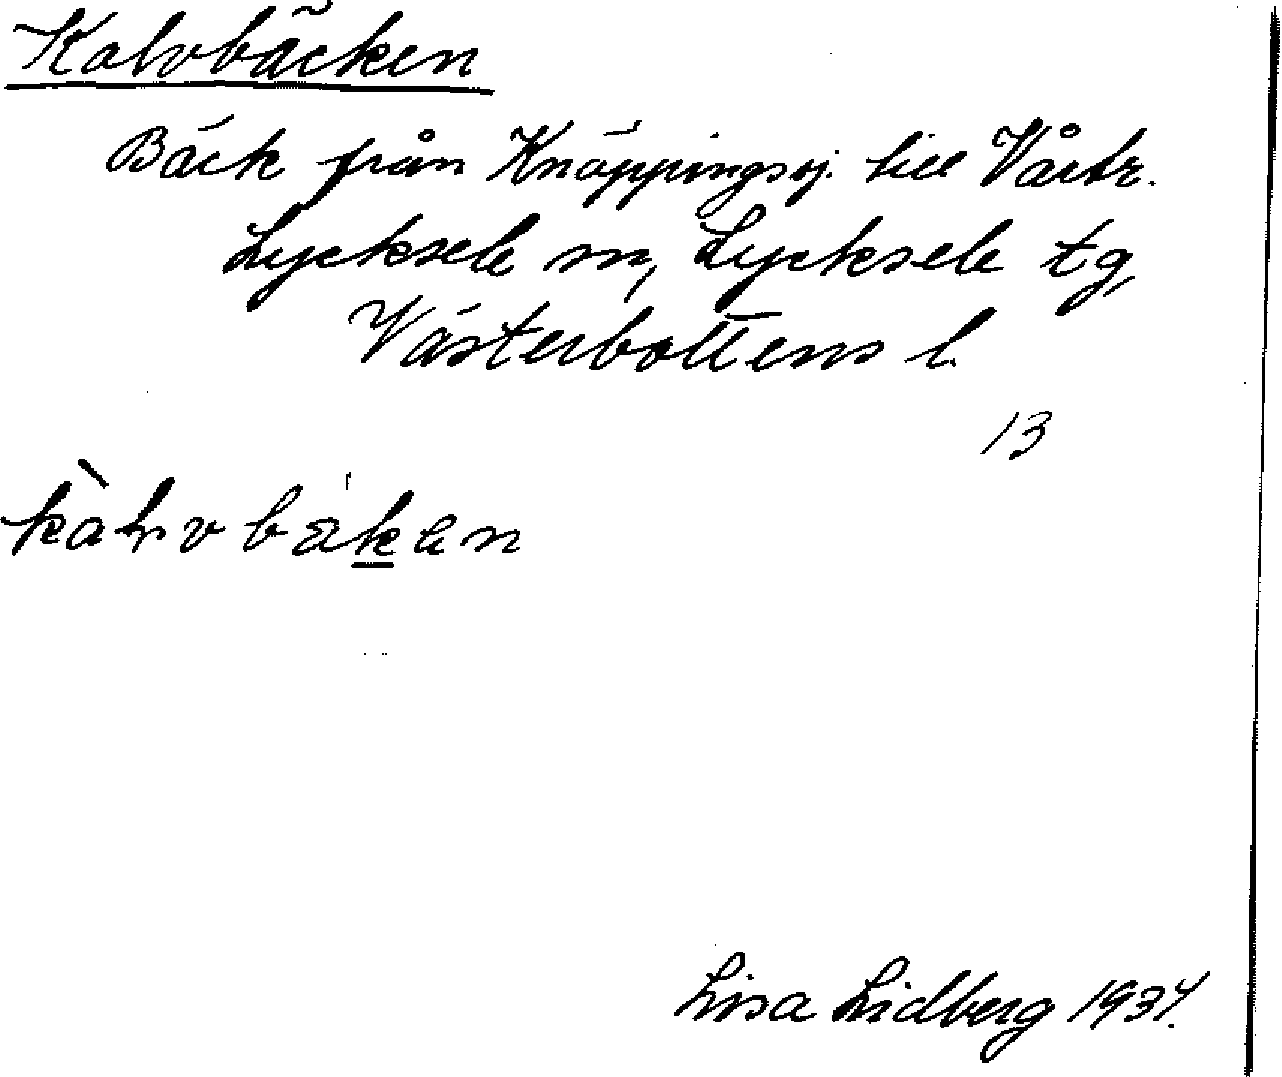 Kalvbäcken
Bäck från Knäppingssj. till Vårtr.
Lycksele sn, Lycksele tg,
Västerbottens l.
13
kàlvbäken
Lisa Lidberg 1934.